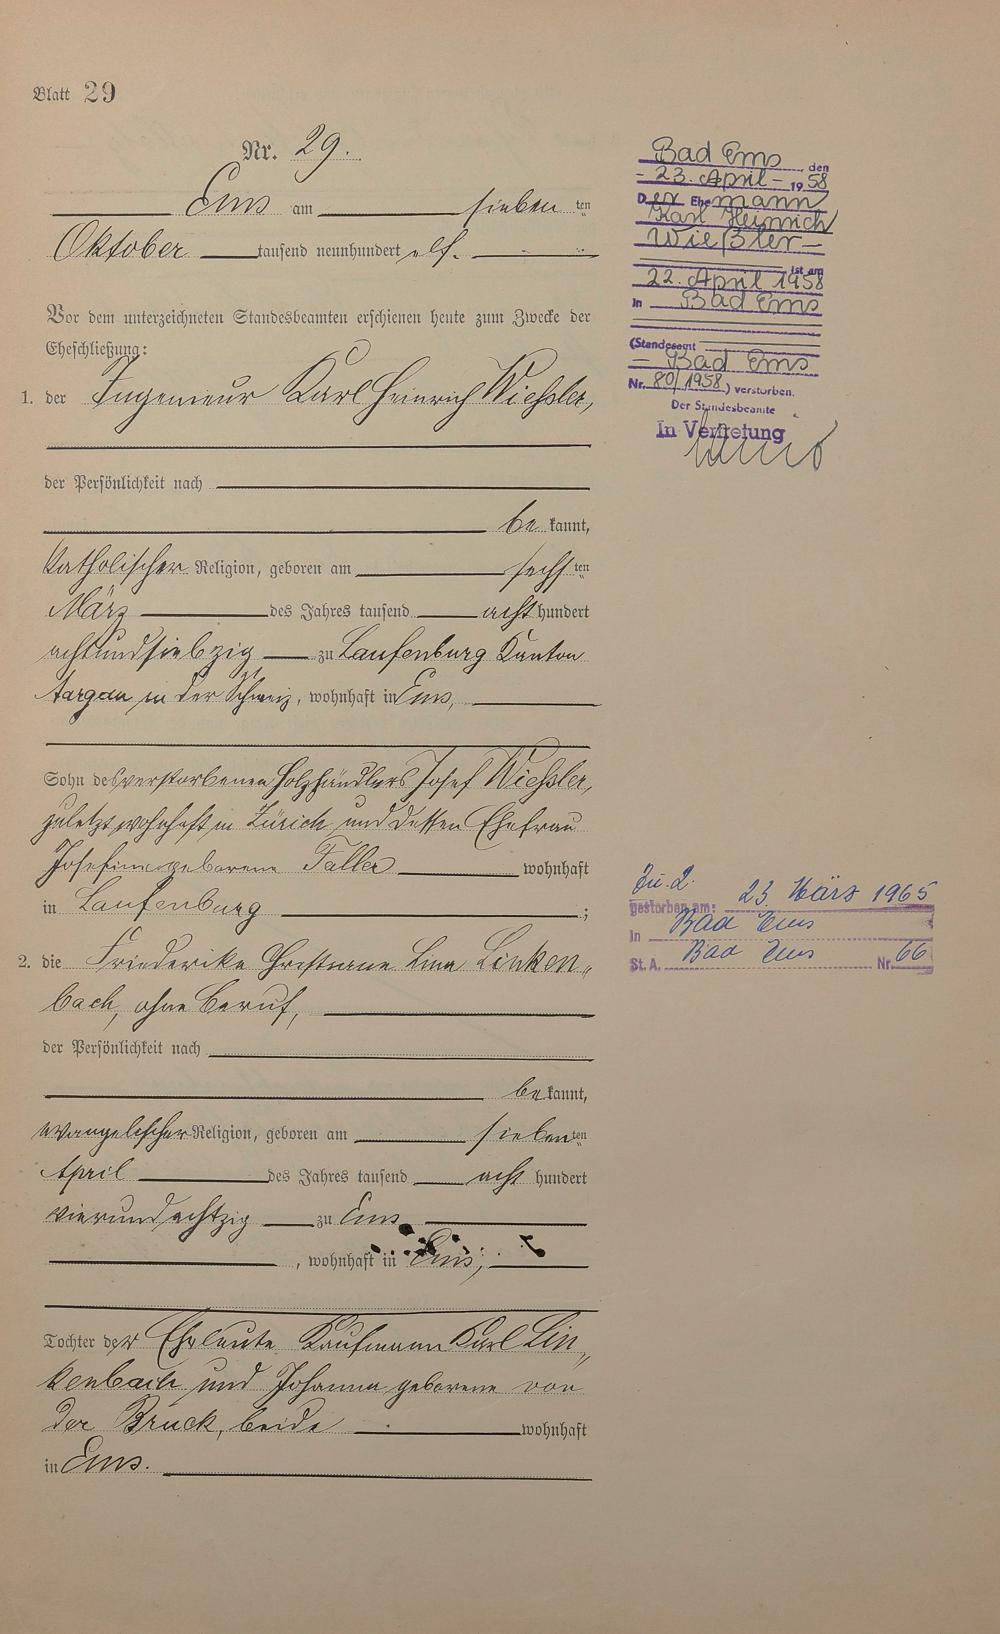 Blatt 29
Nr. 29.
Ems am sieben ten
Oktober tausend neunhundert elf.
Vor dem unterzeichneten Standesbeamten erschienen heute zum Zwecke der
Eheschließung:
1. der Ingenieur Karl Heinrich Wießler,
der Persönlichkeit nach
be kannt,
katholischer Religion, geboren am sechs ten
März des Jahres tausend acht hundert
achtundsiebzig zu Laufenburg Kanton
Aargau in der Schweiz, wohnhaft in Ems,
Sohn des verstorbenen Holzhändlers Josef Wießler,
zuletzt wohnhaft in Zürich und dessen Ehefrau
Josefine geborene Faller wohnhaft
in Laufenburg ;
2. die Friederike Christiane Lina Linken-
bach, ohne Beruf,
der Persönlichkeit nach
be kannt,
evangelischer Religion, geboren am sieben ten
April des Jahres tausend acht hundert
vierundachtzig zu Ems
, wohnhaft in Ems,
Tochter der Eheleute Kaufmann Karl Lin-
kenbach und Johanna geborene von
der Bruck, beide wohnhaft
in Ems.
Bad Ems, den
- 23. April - 19 58
Der Ehemann
Karl Heinrich
Wießler -
ist am
22. April 1958
in Bad Ems
(Standesamt
- Bad Ems
Nr. 80/1958) verstorben.
Der Standesbeamte
In Vertretung
Zu 2.
gestorben am: 23. März 1965
in Bad Ems
St. A. Bad Ems Nr. 66